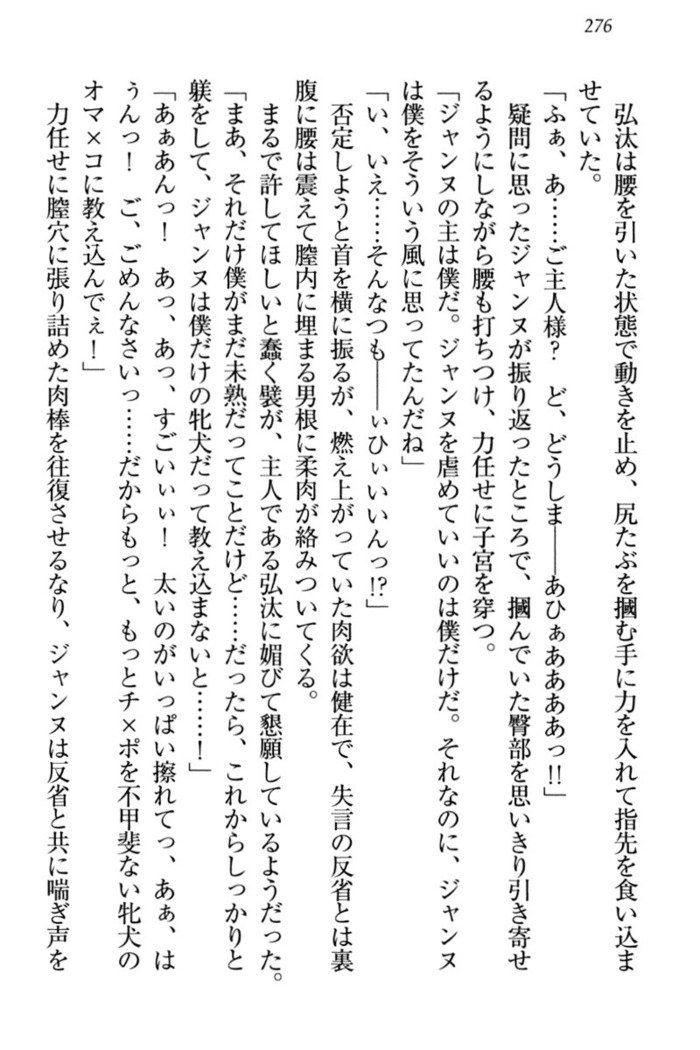 276
弘汰は腰を引いた状態で動きを止め、尻たぶを摑む手に力を入れて指先を食い込ま
せていた。
「ふぁ、あ……ご主人様？　ど、どうしま――あひぁああああっ!!」
疑問に思ったジャンヌが振り返ったところで、摑んでいた臀部を思いきり引き寄せ
るようにしながら腰も打ちつけ、力任せに子宮を穿つ。
「ジャンヌの主は僕だ。ジャンヌを虐めていいのは僕だけだ。それなのに、ジャンヌ
は僕をそういう風に思ってたんだね」
「い、いえ……そんなつも――ぃひぃいいんっ!?」
否定しようと首を横に振るが、燃え上がっていた肉欲は健在で、失言の反省とは裏
腹に腰は震えて膣内に埋まる男根に柔肉が絡みついてくる。
まるで許してほしいと蠢く襞が、主人である弘汰に媚びて懇願しているようだった。
「まあ、それだけ僕がまだ未熟だってことだけど……だったら、これからしっかりと
躾をして、ジャンヌは僕だけの牝犬だって教え込まないと……！」
「あぁあんっ！　あっ、あっ、すごいぃぃ！　太いのがいっぱい擦れてっ、あぁ、は
ぅんっ！　ご、ごめんなさいっ……だからもっと、もっとチ×ポを不甲斐ない牝犬の
オマ×コに教え込んでぇ！」
力任せに膣穴に張り詰めた肉棒を往復させるなり、ジャンヌは反省と共に喘ぎ声を